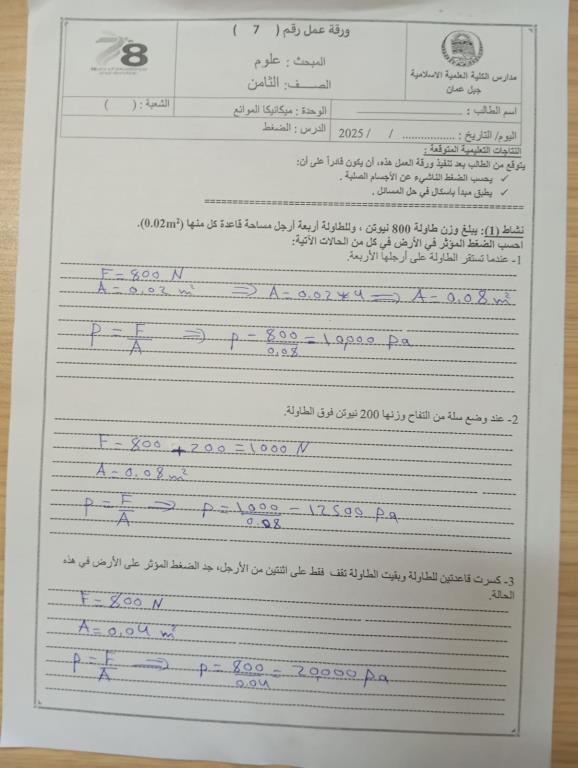 ورقة عمل رقم ( 7 )
مدارس الكلية العلمية الاسلامية
جبل عمان
المبحث : علوم
الصف: الثامن
78
اسم الطالب :
الوحدة : ميكانيكا الموائع
الشعبة : ( )
اليوم/ التاريخ : ................. / / 2025
الدرس : الضغط
النتاجات التعليمية المتوقعة :
يتوقع من الطالب بعد تنفيذ ورقة العمل هذه، أن يكون قادراً على أن:
✓ يحسب الضغط الناشيء عن الأجسام الصلبة .
✓ يطبق مبدأ باسكال في حل المسائل .
نشاط (1): يبلغ وزن طاولة 800 نيوتن ، وللطاولة أربعة أرجل مساحة قاعدة كل منها (0.02m²).
احسب الضغط المؤثر في الأرض في كل من الحالات الآتية:
1- عندما تستقر الطاولة على أرجلها الأربعة.
F = 800 N
A = 0.02 m² ⇒ A = 0.02*4 ⇒ A = 0.08 m²
P = F/A ⇒ P = 800/0.08 = 10,000 Pa
2- عند وضع سلة من التفاح وزنها 200 نيوتن فوق الطاولة.
F = 800 + 200 = 1000 N
A = 0.08 m²
P = F/A ⇒ P = 1000/0.08 = 12500 Pa
3- كسرت قاعدتين للطاولة وبقيت الطاولة تقف فقط على اثنتين من الأرجل، جد الضغط المؤثر على الأرض في هذه
الحالة.
F = 800 N
A = 0.04 m²
P = F/A ⇒ P = 800/0.04 = 20,000 Pa